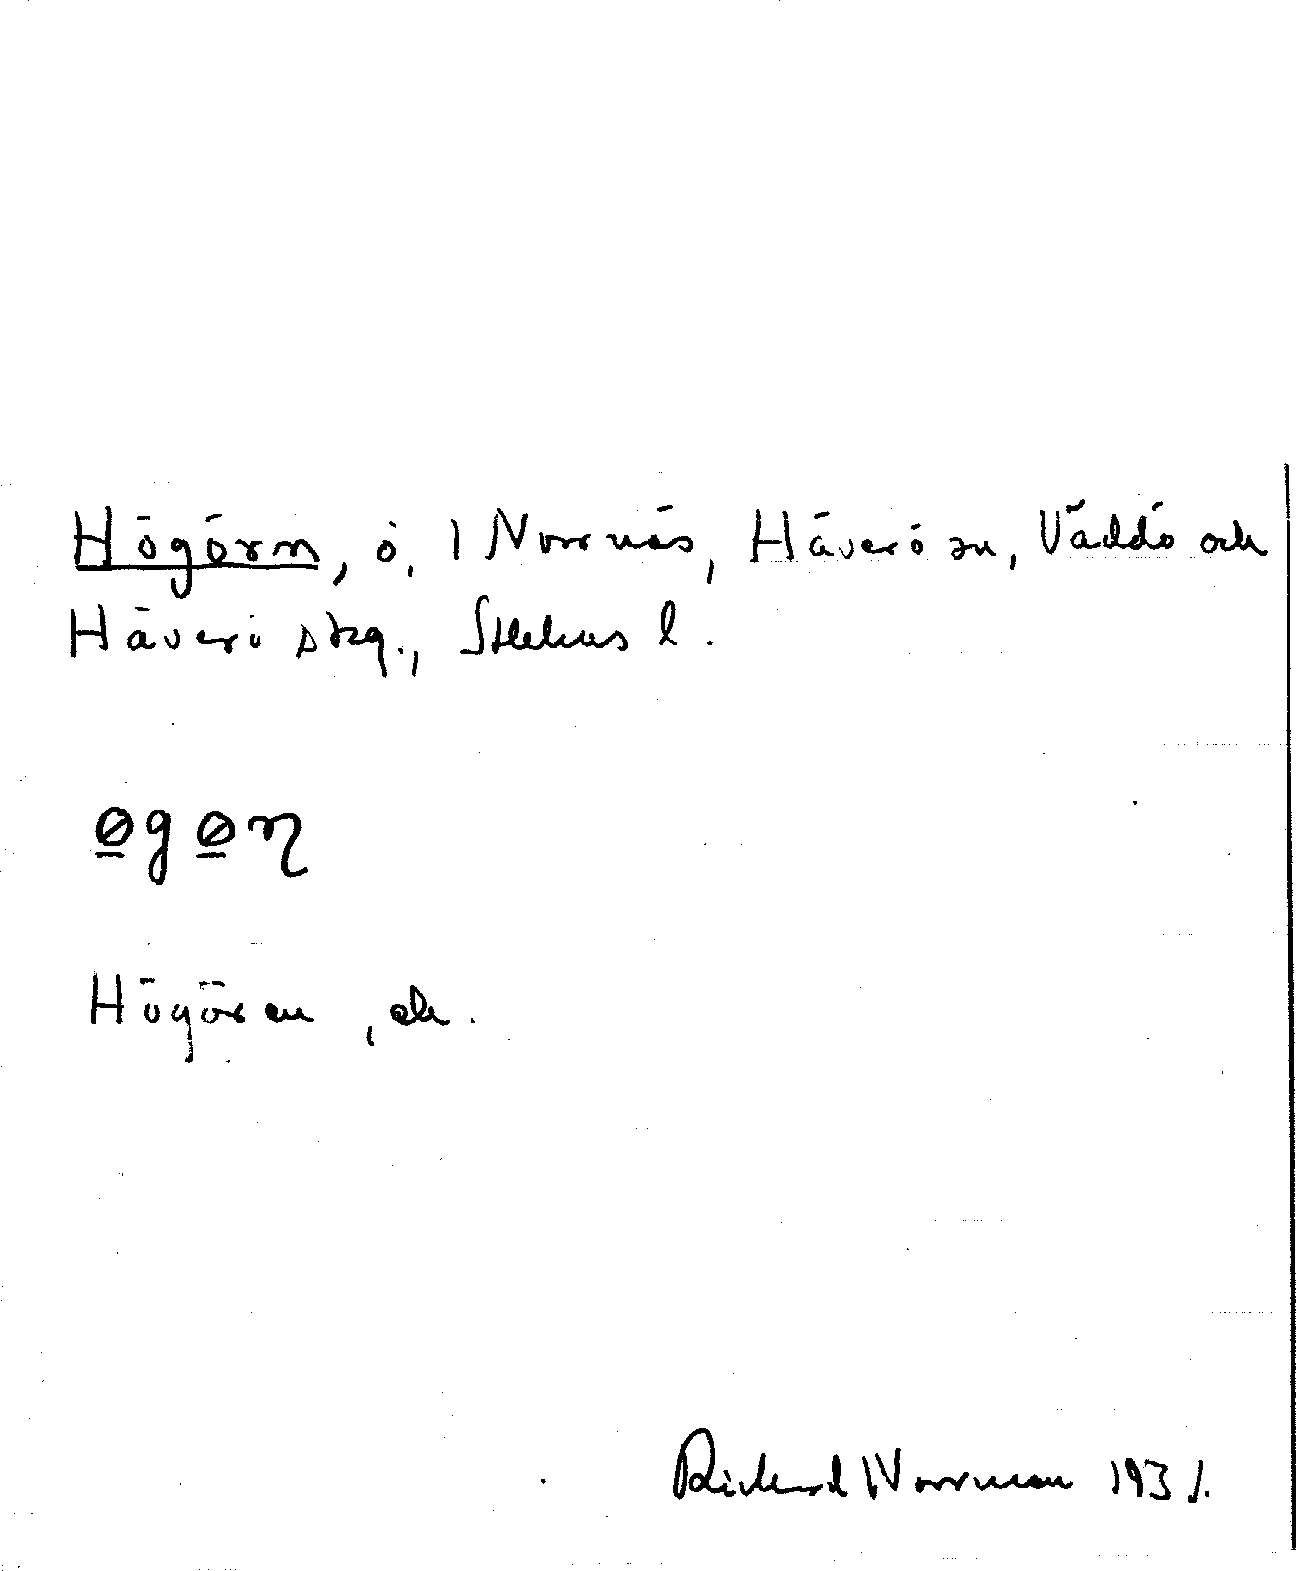 Högörn, ö, i Norrnäs, Häverö sn, Väddö och
Häverö skg., Sthlms l.
øgøn̡
Högören, ek.
Richard Norrman 1931.